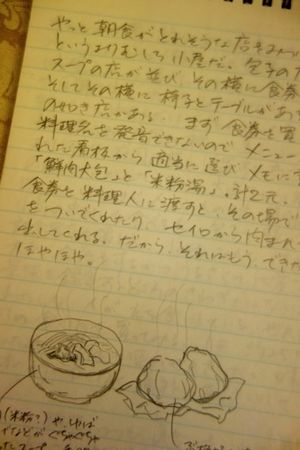 やっと朝食がとれそうな店をみ
というよりむしろ小屋だ。包子の
スープの店が並び、その横に食券
そしてその横に椅子とテーブルがあ
の如き店がある。まず食券を買
料理名を発音できないので メニュー
れた看板から適当に選び メモに
「鮮肉大包」と「米粉湯」。計2元。
食券を料理人に渡すと、その場で
をついでくれたり、セイロから肉まん
出してくれる。だから、それはもう、できた
ほやほや。
(米粉?)や、ゆば
などがぐちゃぐちゃ
スープ